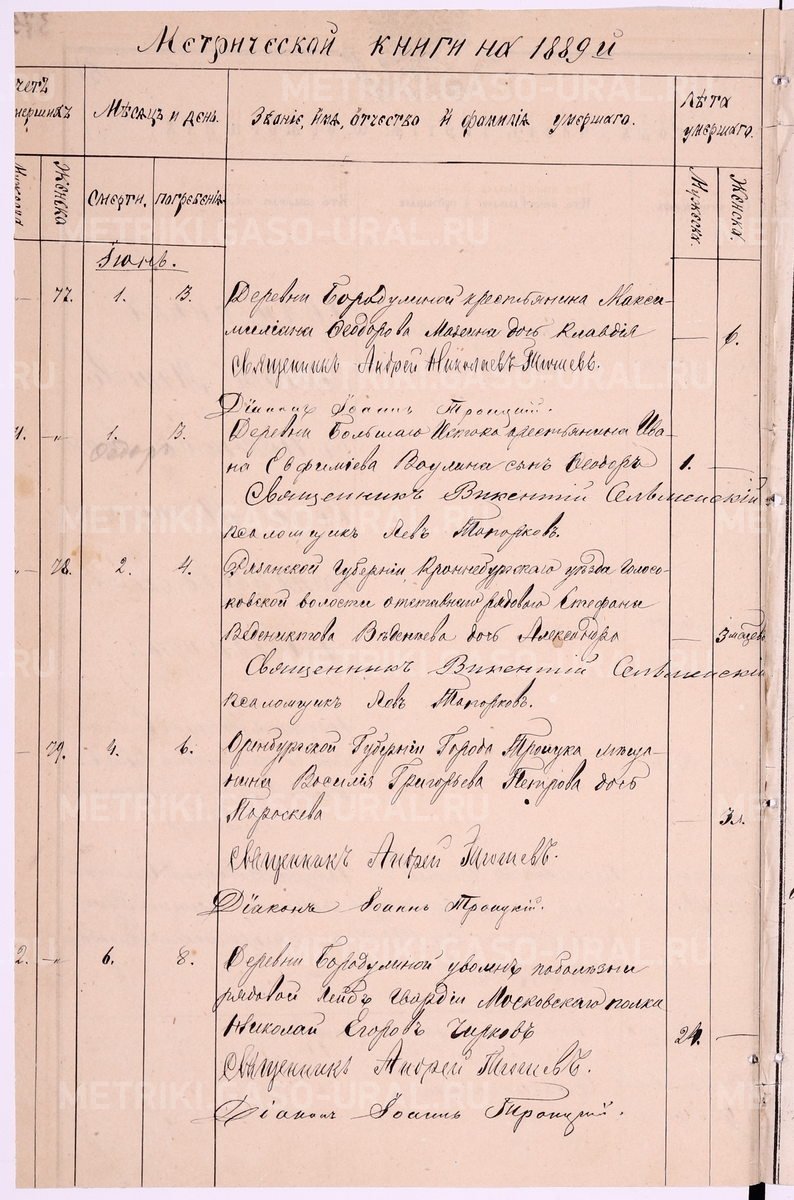 Метрической книги на 1889 й
Счетъ умершихъ
Мѣсяцъ и день.
Званіе, имя, отчество и фамилія умершаго.
Лѣта умершаго.
Женска
Смерти.
Погребенія
Мужеска.
Женска.
Іюнь.
77. 1. 3. Деревни Бородулиной крестьянина Макси-
миліана Ѳеодорова Мазеина дочь Клавдія — 6.
Священникъ Андрей Николаевъ
Діаконъ Іоаннъ Троицкій.
1. 3. Деревни Большаго Истока крестьянина Ива-
на Евфиміева Ваулина сынъ Ѳеодоръ 1. —
Священникъ Викентій Сельменскій
псаломщикъ Левъ Топорковъ.
78. 2. 4. Рязанской Губерніи Кроннебургскаго уѣзда
волости отставнаго рядоваго Стефана
дочь Александра — 3
Священникъ Викентій Сельменскій
псаломщикъ Левъ Топорковъ.
79. 4. 6. Оренбургской Губерніи Города Троицка мѣща-
нина Василія Григорьева Петрова дочь
Параскева — 3 л.
Священникъ Андрей
Діаконъ Іоаннъ Троицкій.
2. 6. 8. Деревни Бородулиной уволенъ поболѣзни
рядовой Лейбъ Гвардіи Московскаго полка
Николай Егоровъ Чирковъ 24. —
Священникъ Андрей
Діаконъ Іоаннъ Троицкій.
METRIKI.GASO-URAL.RU